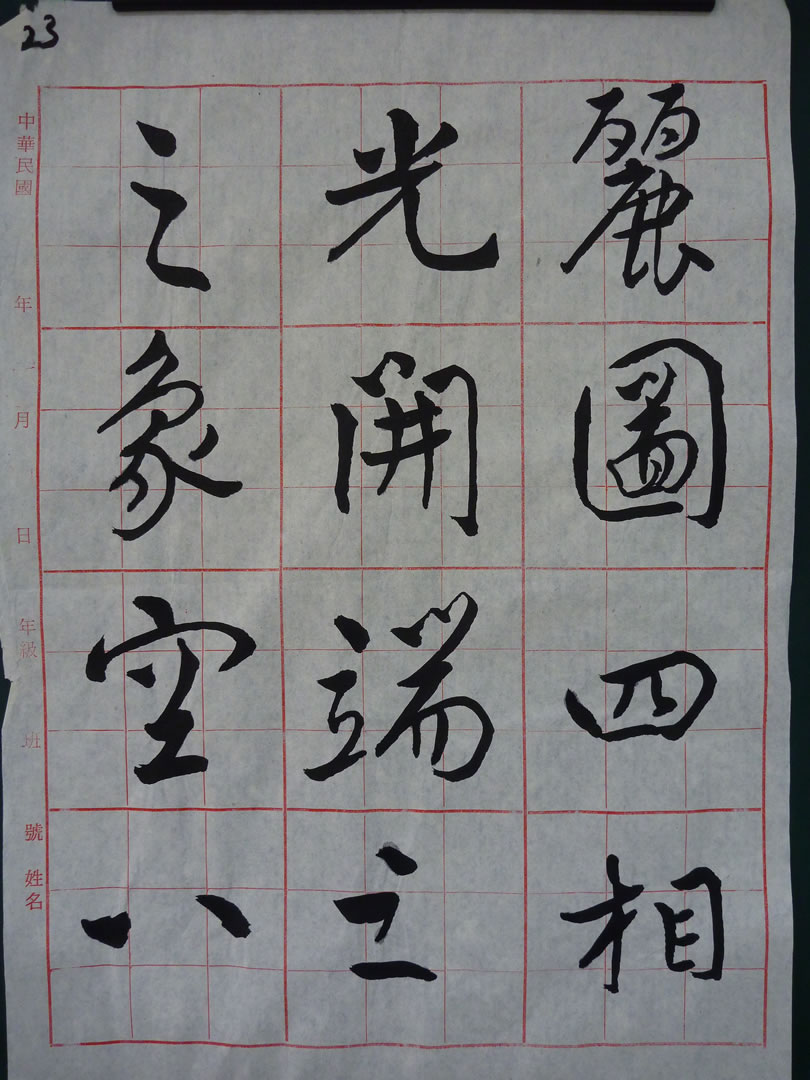 23
之光麗
象開圖
空端四
八之相
中華民國 年 月 日 年級 班 號 姓名